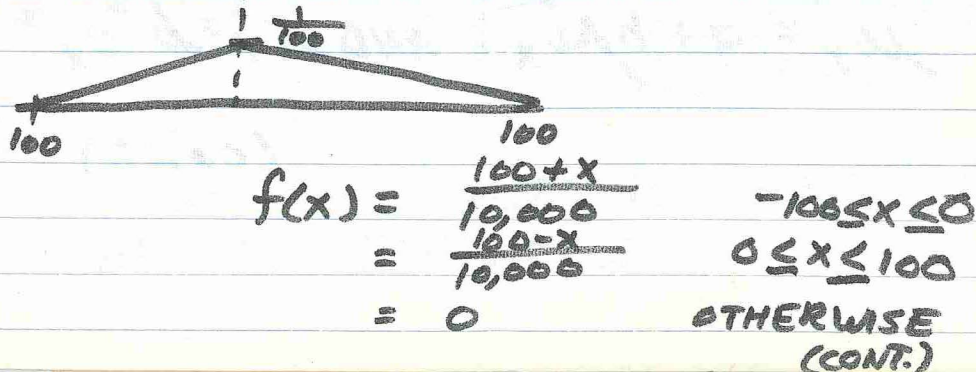 1/100
100 100
f(x) = (100+x)/10,000 -100≤x≤0
= (100-x)/10,000 0≤x≤100
= 0 OTHERWISE
(CONT.)